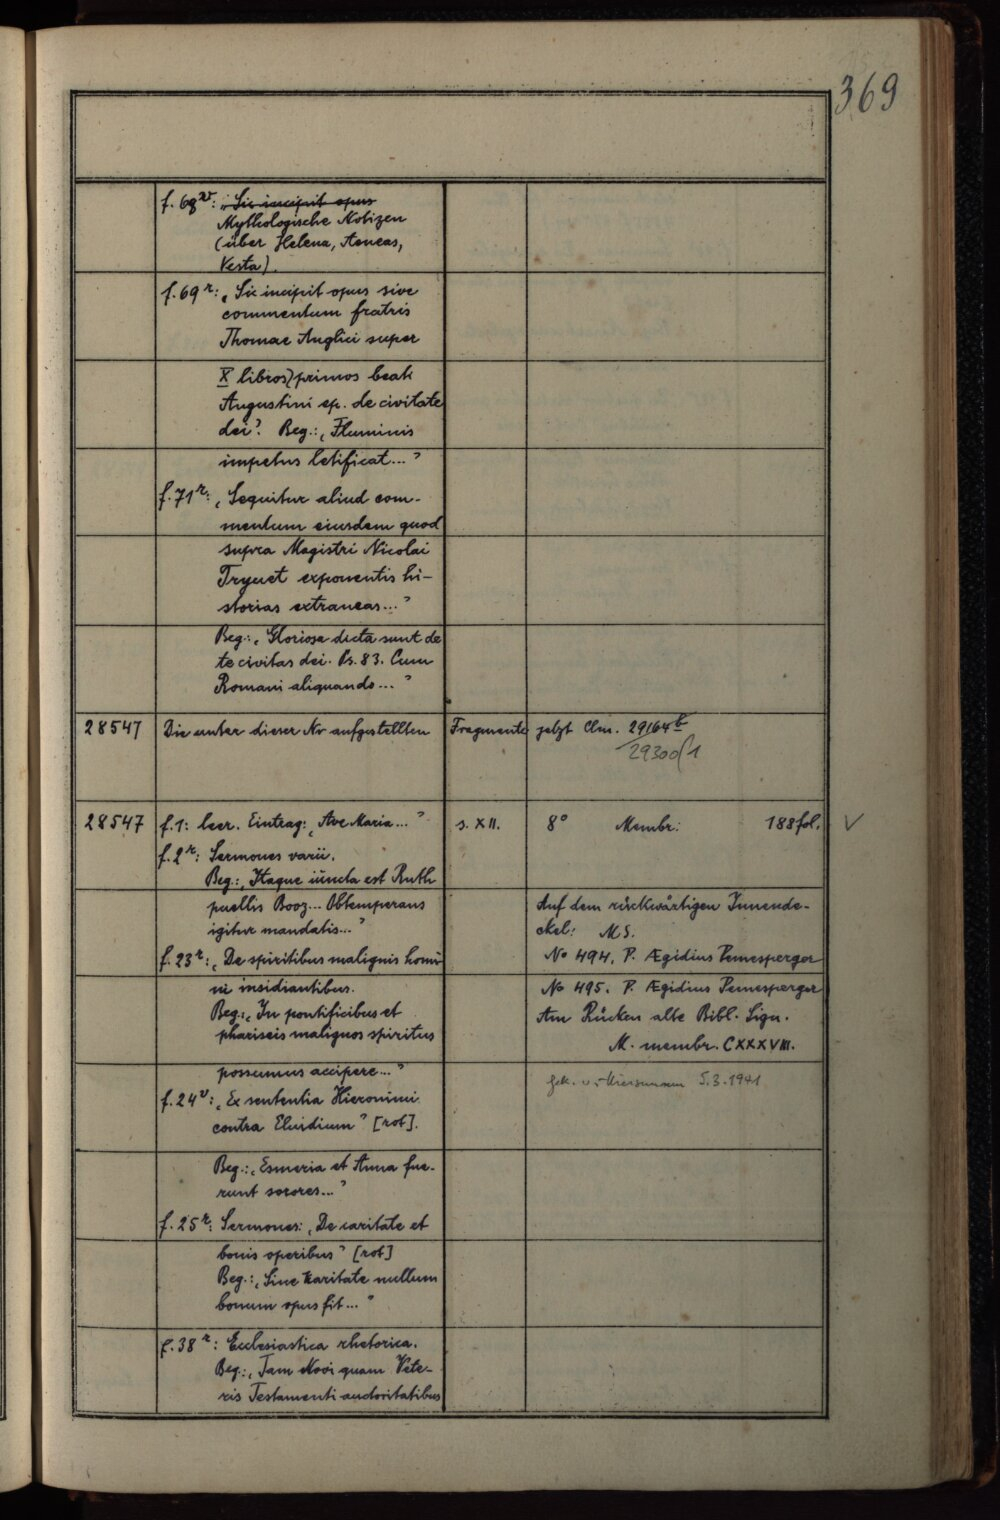 369
f. 68v: „Sic incipit opus
Mythologische Notizen
(über Helena, Aeneas,
Vesta).
f. 69r: „Sic incipit opus sive
commentum fratris
Thomae Anglici super
X libros primos beati
Augustini ep. de civitate
dei“. Beg.: „Fluminis
impetus letificat...“
f. 71r: „Sequitur aliud com-
mentum eiusdem quod
supra Magistri Nicolai
Tryuet exponentis hi-
storias extraneas...“
Beg.: „Gloriosa dicta sunt de
te civitas dei. Ps. 83. Cum
Romani aliquando...“
28547 Die unter dieser Nr aufgestellten Fragmente jetzt Clm. 29164b
29300/1
28547 f. 1: leer. Eintrag: „Ave Maria...“ s. XII. 8° Membr. 188 fol. V
f. 2r: Sermones varii.
Beg.: „Itaque iuncta est Ruth
puellis Booz... Obtemperans
igitur mandatis...“
f. 23r: „De spiritibus malignis homi-
ni insidiantibus.
Beg.: „In pontificibus et
phariseis malignos spiritus
possumus accipere...“
f. 24v: „Ex sententia Hieronimi
contra Eluidium“ [rot].
Beg.: „Esmeria et Anna fue-
runt sorores...“
f. 25r: Sermones: „De caritate et
bonis operibus“ [rot]
Beg.: „Sine karitate nullum
bonum opus fit...“
f. 38r: Ecclesiastica rhetorica.
Beg.: „Tam Novi quam Vete-
ris Testamenti auctoritatibus
Auf dem rückwärtigen Innende-
ckel: MS.
No 494. P. Ægidius Pemesperger
No 495. P. Ægidius Pemesperger
Am Rücken alte Bibl. Sign.
M. membr. CXXXVIII.
5.3.1941